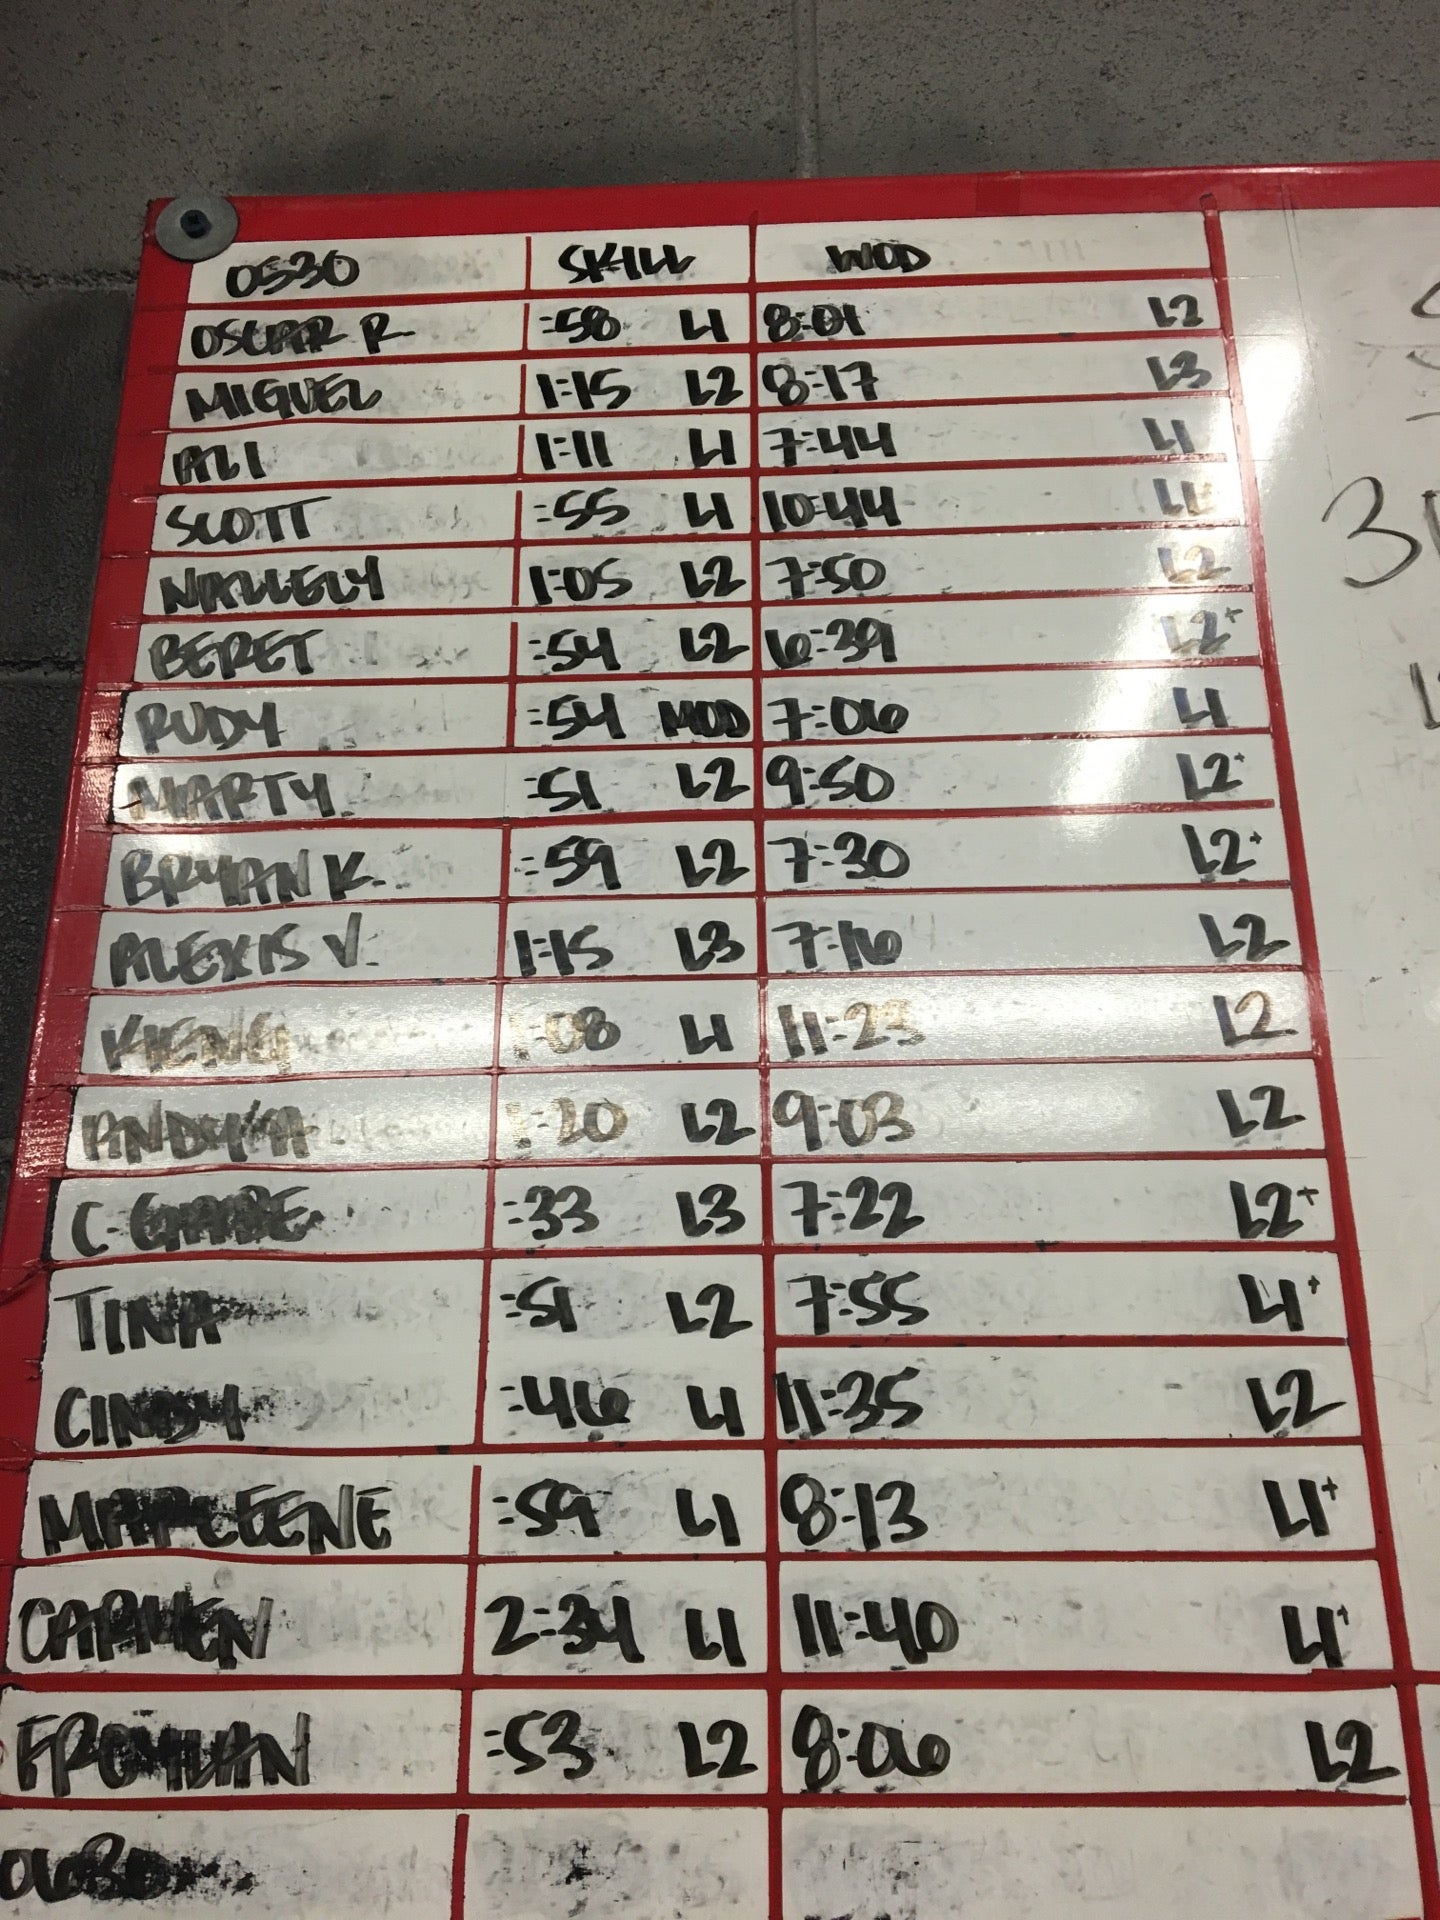 0530 SKILL WOD
OSCAR R :58 L1 8:01 L2
MIGUEL 1:15 L2 8:17 L3
ALI 1:11 L1 7:44 L1
SCOTT :55 L1 10:44
NALLELY 1:05 L2 7:50 L2
BERET :54 L2 6:39 L2+
RUDY :54 MOD 7:06 L1
MARTY :51 L2 9:50 L2+
BRYAN K. :59 L2 7:30 L2+
ALEXIS V. 1:15 L3 7:16 L2
KIENG 1:08 L1 11:23 L2
ANDY A 1:20 L2 9:03 L2
C. :33 L3 7:22 L2+
TINA :51 L2 7:55 L1+
CINDY :46 L1 11:35 L2
MARLEENE :59 L1 8:13 L1+
CARMEN 2:34 L1 11:40 L1+
FROYLAN :53 L2 8:06 L2
0630